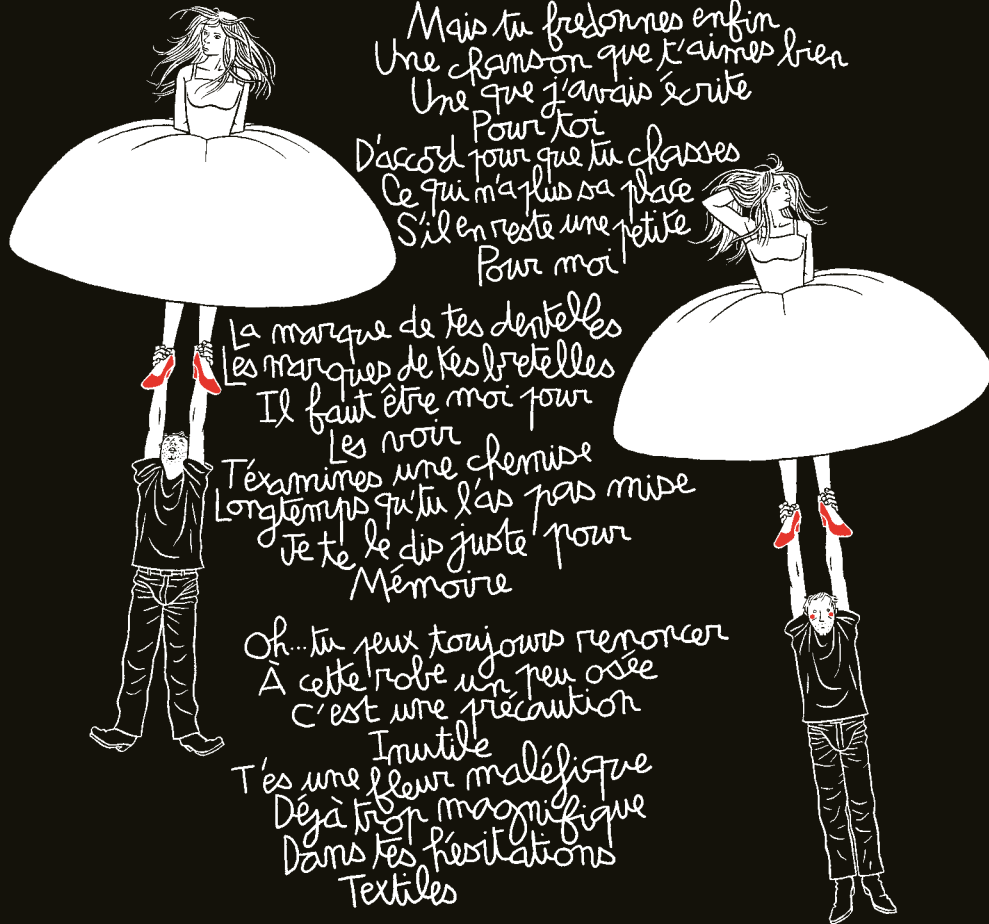 Mais tu fredonnes enfin
Une chanson que t'aimes bien
Une que j'avais écrite
Pour toi
D'accord pour que tu chasses
Ce qui n'a plus sa place
S'il en reste une petite
Pour moi
La marque de tes dentelles
Les marques de tes bretelles
Il faut être moi pour
Les voir
T'éxamines une chemise
Longtemps qu'tu l'as pas mise
Je te le dis juste pour
Mémoire
Oh...tu peux toujours renoncer
À cette robe un peu osée
C'est une précaution
Inutile
T'és une fleur maléfique
Déjà trop magnifique
Dans tes hésitations
Textiles